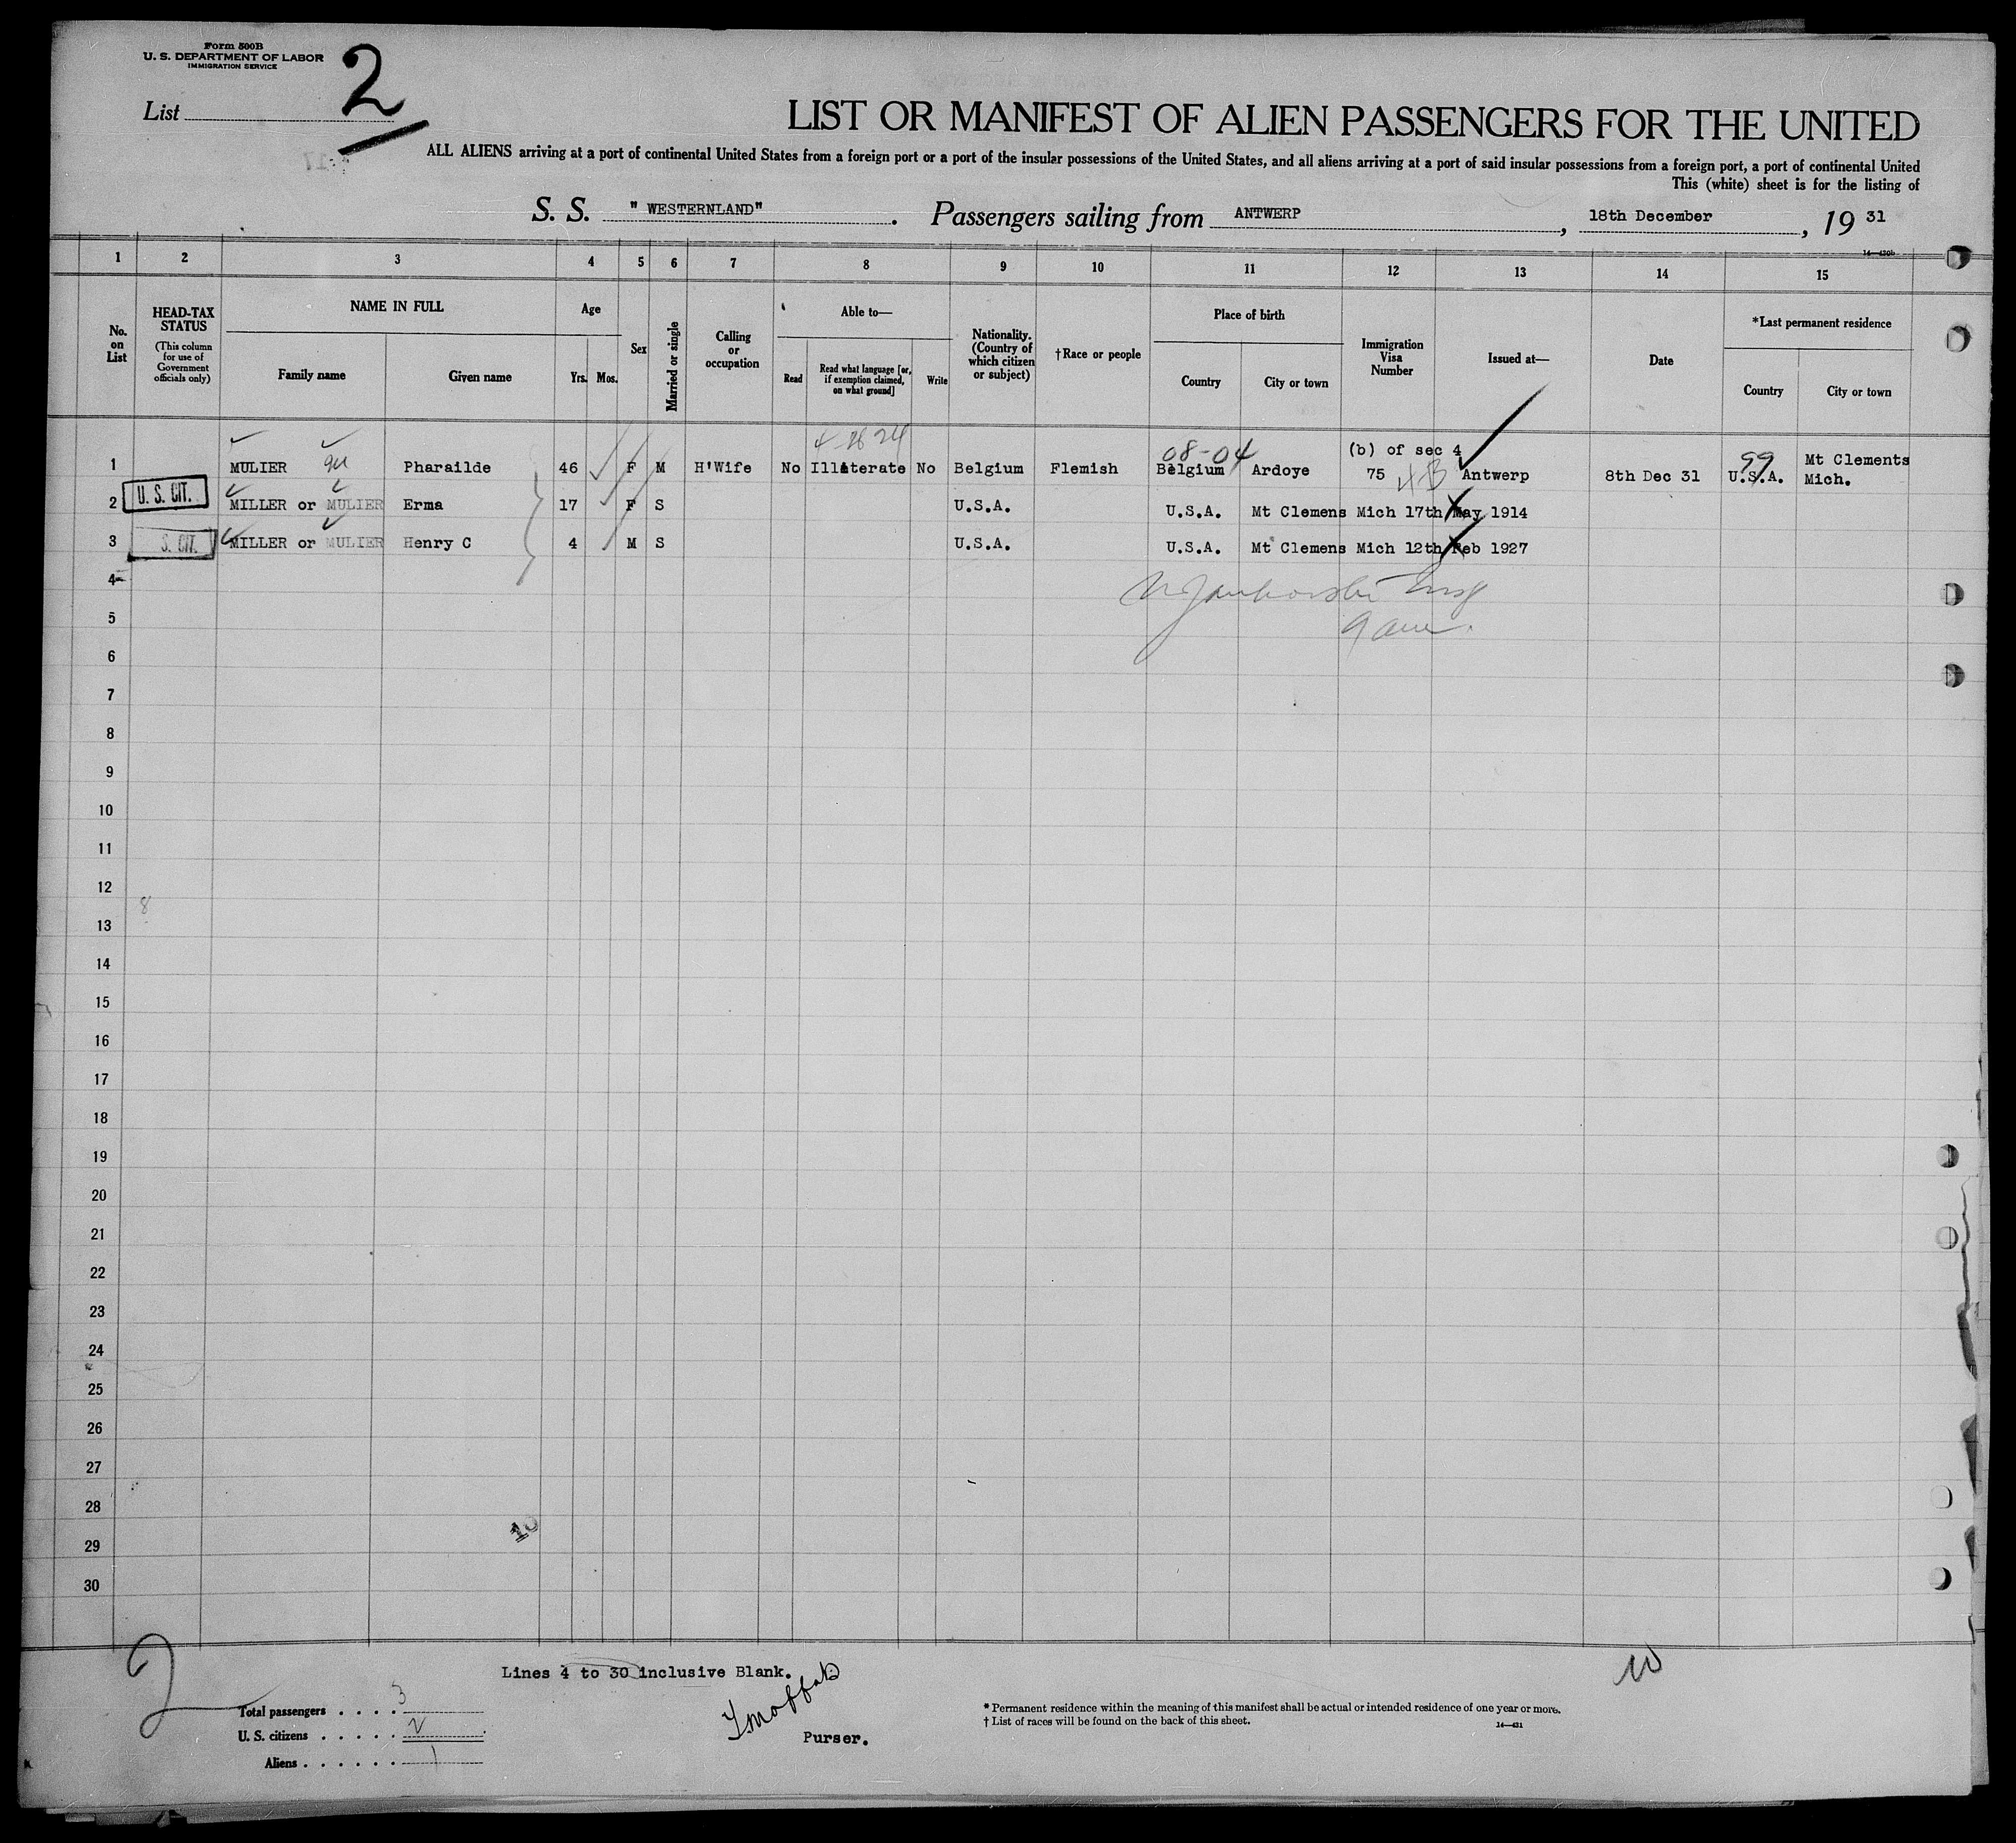 Form 500B
U. S. DEPARTMENT OF LABOR
IMMIGRATION SERVICE
List 2
LIST OR MANIFEST OF ALIEN PASSENGERS FOR THE UNITED
ALL ALIENS arriving at a port of continental United States from a foreign port or a port of the insular possessions of the United States, and all aliens arriving at a port of said insular possessions from a foreign port, a port of continental United
This (white) sheet is for the listing of
S. S. " WESTERNLAND" . Passengers sailing from ANTWERP , 18th December , 19 31
14—430b
1 2 3 4 5 6 7 8 9 10 11 12 13 14 15
No. on List
HEAD-TAX STATUS
(This column for use of Government officials only)
NAME IN FULL
Family name Given name
Age
Yrs. Mos.
Sex
Married or single
Calling or occupation
Able to—
Read
Read what language [or, if exemption claimed, on what ground]
Write
Nationality. (Country of which citizen or subject)
†Race or people
Place of birth
Country City or town
Immigration Visa Number
Issued at—
Date
*Last permanent residence
Country City or town
4-26 24
08-04 (b) of sec 4 99 Mt Clements
1 MULIER Pharailde 46 F M H'Wife No Illiterate No Belgium Flemish Belgium Ardoye 75 4B Antwerp 8th Dec 31 U.S.A. Mich.
2 U. S. CIT. MILLER or MULIER Erma 17 F S U.S.A. U.S.A. Mt Clemens Mich 17th May 1914
3 S. CIT. MILLER or MULIER Henry C 4 M S U.S.A. U.S.A. Mt Clemens Mich 12th Feb 1927
4
5
6
7
8
9
10
11
12
8
13
14
15
16
17
18
19
20
21
22
23
24
25
26
27
28
10
29
30
2
Lines 4 to 30 inclusive Blank.
Total passengers . . . . 3
U. S. citizens . . . . . 2
Aliens . . . . . . 1
Purser.
* Permanent residence within the meaning of this manifest shall be actual or intended residence of one year or more.
† List of races will be found on the back of this sheet.
14—431